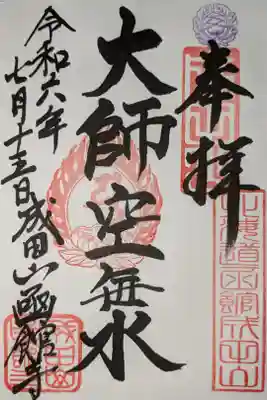 奉拝
北海道函館成田山
大師空無水
令和六年
七月十五日成田山函館寺